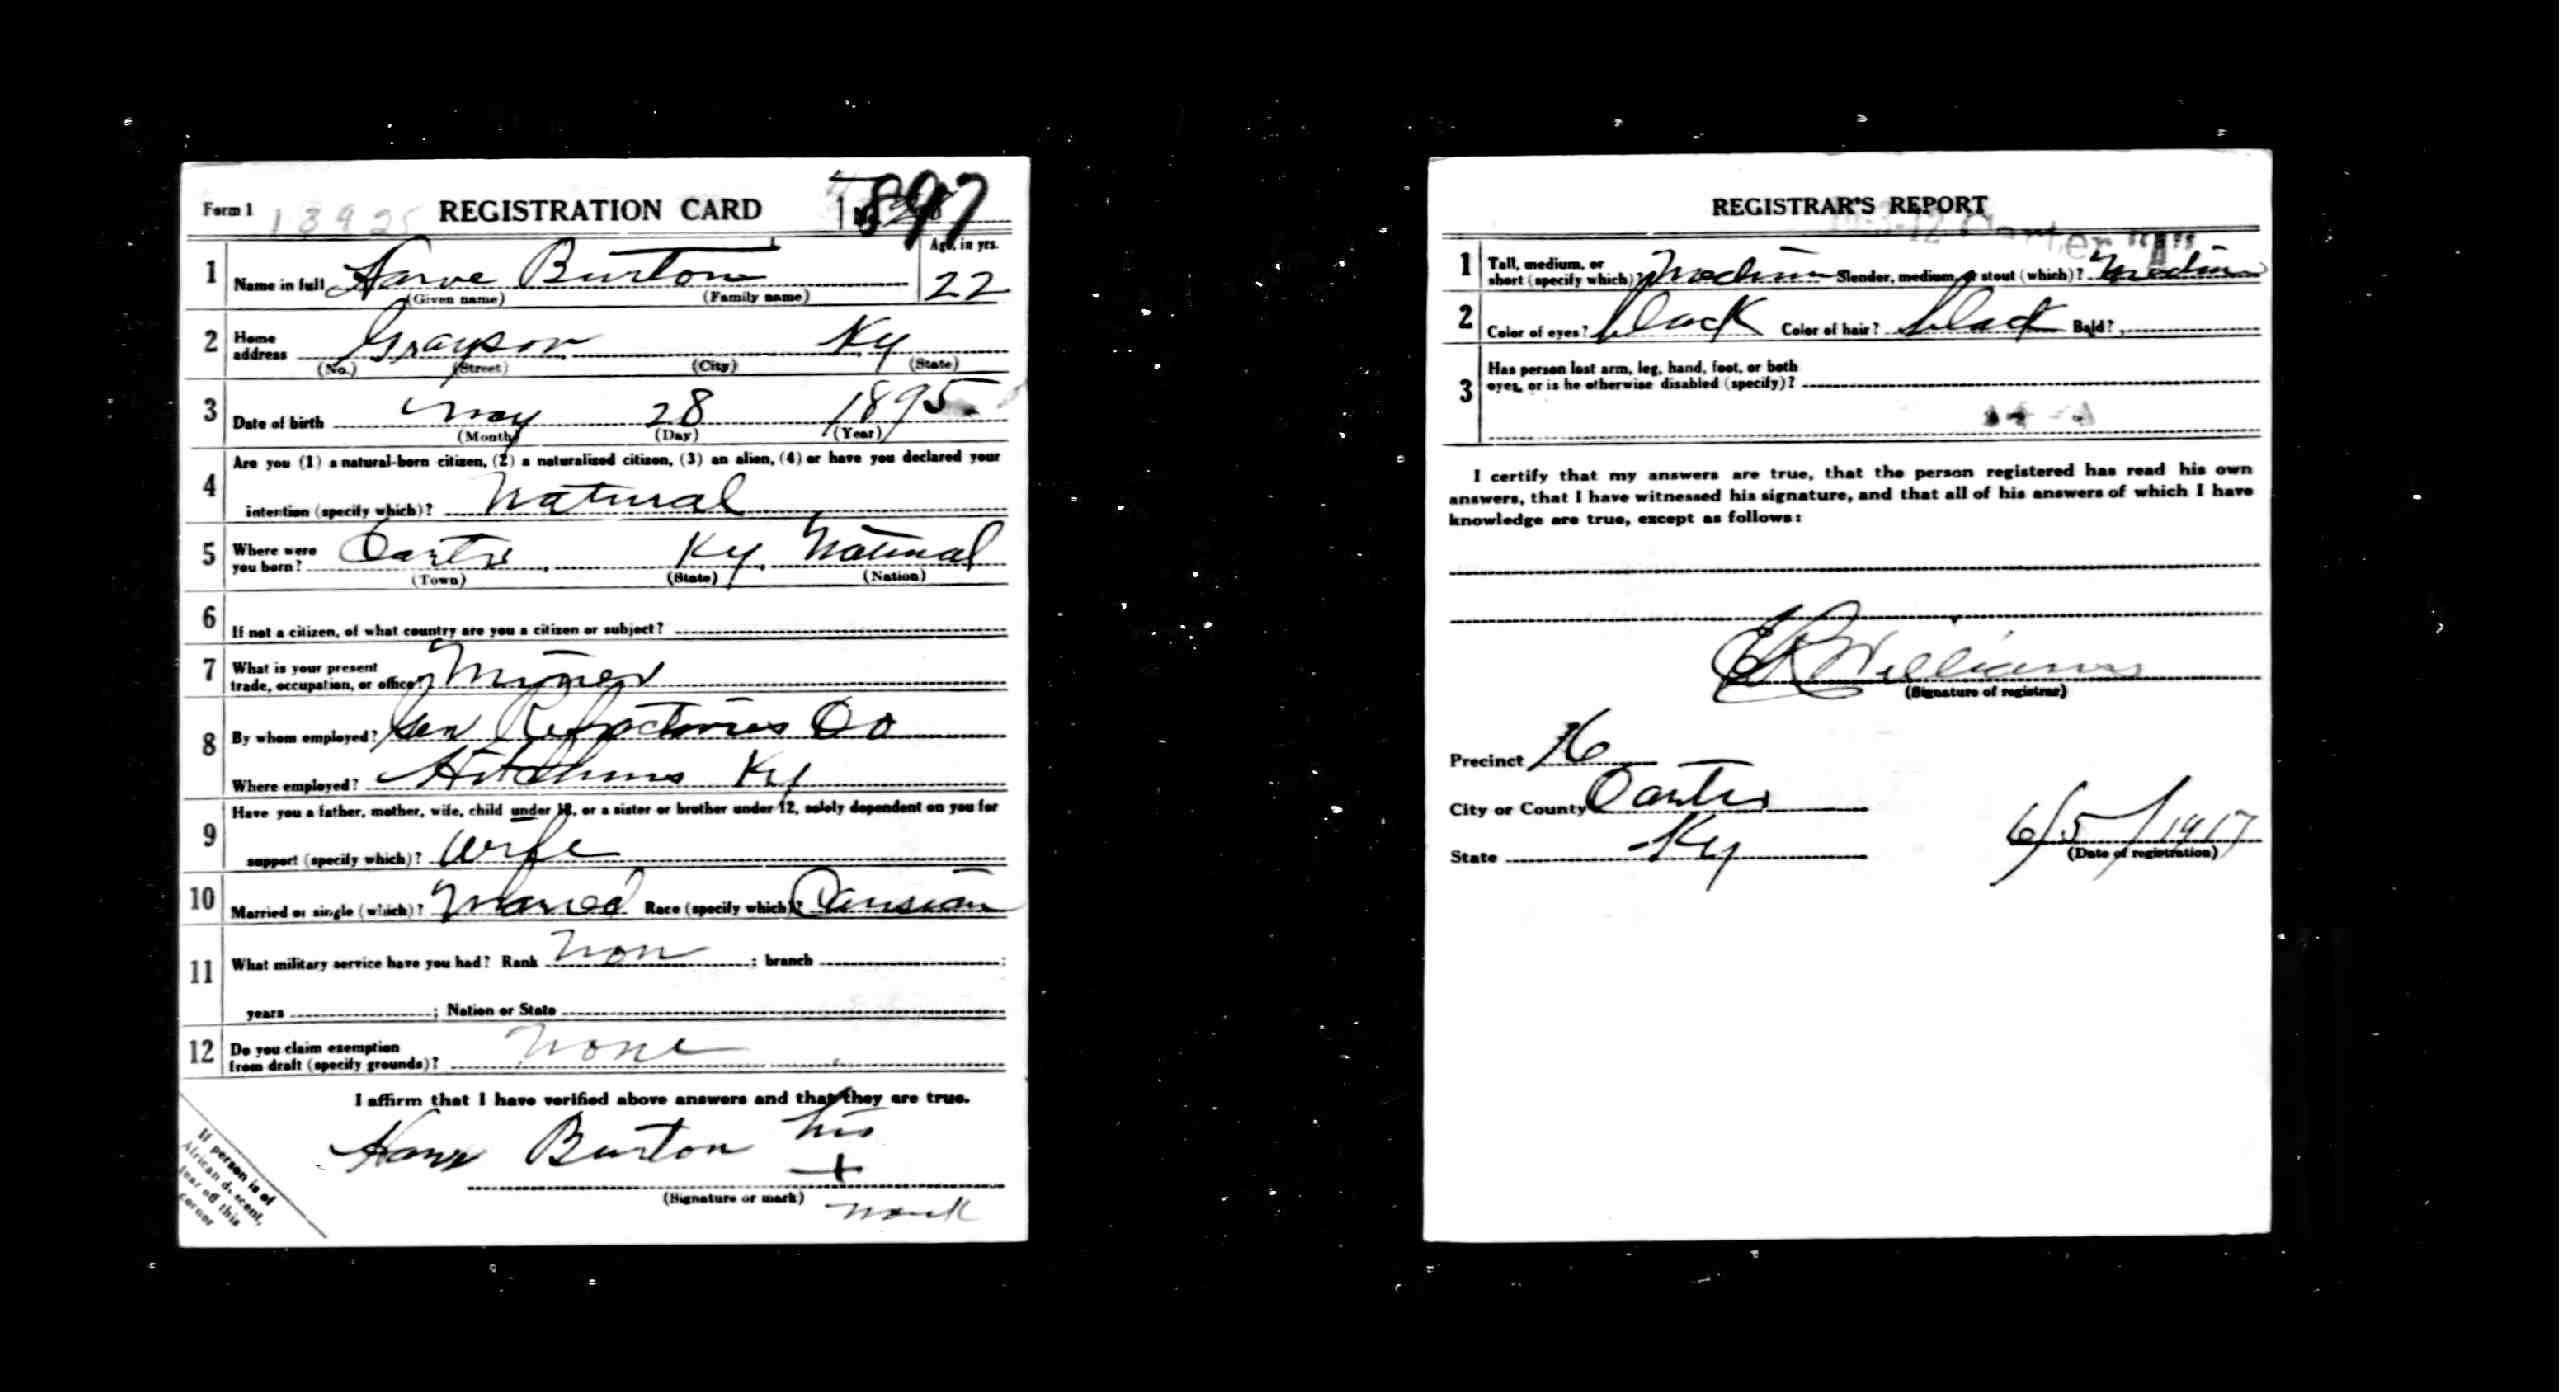 Form 1 REGISTRATION CARD 897
1 Name in full Harve Burton Age, in yrs. 22
(Given name) (Family name)
2 Home address Grayson Ky
(No.) (Street) (City) (State)
3 Date of birth May 28 1895
(Month) (Day) (Year)
4 Are you (1) a natural-born citizen, (2) a naturalized citizen, (3) an alien, (4) or have you declared your
intention (specify which)? Natural
5 Where were you born? Carter Ky Natural
(Town) (State) (Nation)
6 If not a citizen, of what country are you a citizen or subject?
7 What is your present
trade, occupation, or office? Miner
8 By whom employed? Gen Refractories Co
Where employed? Hitchins Ky
9 Have you a father, mother, wife, child under 12, or a sister or brother under 12, solely dependent on you for
support (specify which)? Wife
10 Married or single (which)? Married Race (specify which)?
11 What military service have you had? Rank Non ; branch ;
years ; Nation or State
12 Do you claim exemption
from draft (specify grounds)? None
I affirm that I have verified above answers and that they are true.
Harve Burton his
+
(Signature or mark) mark
If person is of
African descent,
tear off this
corner
REGISTRAR'S REPORT
1 Tall, medium, or
short (specify which)? Medium Slender, medium, or stout (which)? Medium
2 Color of eyes? black Color of hair? black Bald?
3 Has person lost arm, leg, hand, foot, or both
eyes, or is he otherwise disabled (specify)?
I certify that my answers are true, that the person registered has read his own
answers, that I have witnessed his signature, and that all of his answers of which I have
knowledge are true, except as follows:
Williams
(Signature of registrar)
Precinct 16
City or County Carter
State Ky 6/5/1917
(Date of registration)